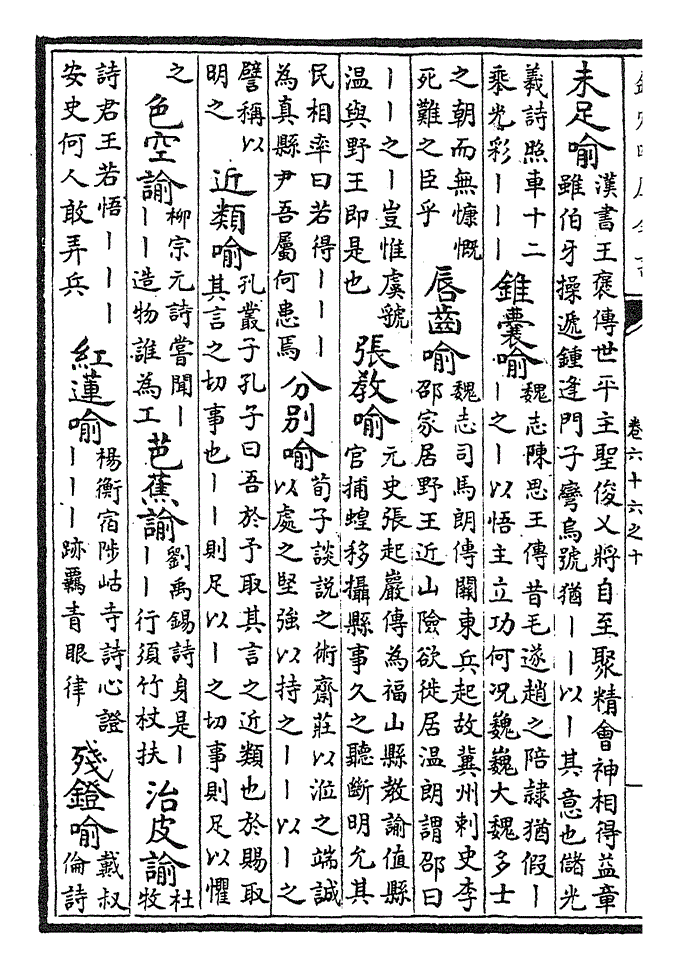 卷六十六之十
未足喻
漢書王褒傳世平主聖俊乂將自至聚精會神相得益章
雖伯牙操遞鍾逢門子彎烏號猶丨丨以丨其意也儲光
羲詩照車十二
乘光彩丨丨丨
錐囊喻
魏志陳思王傳昔毛遂趙之陪隸猶假丨
丨之丨以悟主立功何况巍巍大魏多士
之朝而無慷慨
死難之臣乎
唇齒喻
魏志司馬朗傳關東兵起故冀州刺史李
邵家居野王近山險欲徙居温朗謂邵曰
丨丨之丨豈惟虞虢
温與野王即是也
張教喻
元史張起巖傳為福山縣教諭值縣
官捕蝗移攝縣事久之聽斷明允其
民相率曰若得丨丨丨
為真縣尹吾屬何患焉
分别喻
荀子談說之術齋莊以涖之端誠
以處之堅強以持之丨丨以丨之
譬稱以
明之
近類喻
孔叢子孔子曰吾於予取其言之近類也於賜取
其言之切事也丨丨則足以丨之切事則足以懼
之
色空諭
柳宗元詩嘗聞丨
丨丨造物誰為工
芭蕉諭
劉禹錫詩身是丨
丨丨行須竹杖扶
治皮諭
杜
牧
詩君王若悟丨丨丨
安史何人敢弄兵
紅蓮喻
楊衡宿陟岵寺詩心證
丨丨丨跡羈青眼律
殘鐙喻
戴叔
倫詩